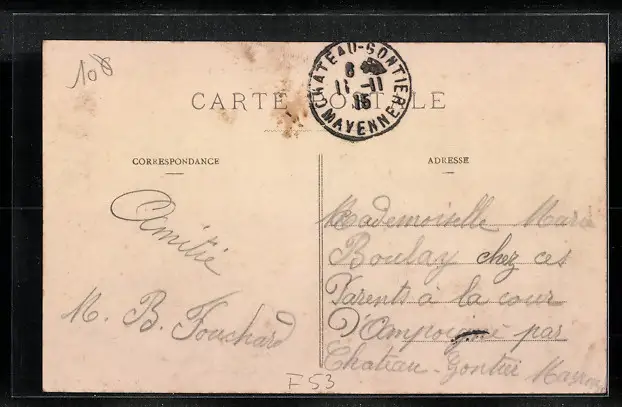 10
CARTE POSTALE
CHATEAU-GONTIER
8
11 -11
15
MAYENNE
CORRESPONDANCE
ADRESSE
Amitié
M. B. Fouchard
Mademoiselle Marie
Boulay chez ces
Parents à la cour
D'Ampoigné par
Chateau-Gontier Mayenne
F53